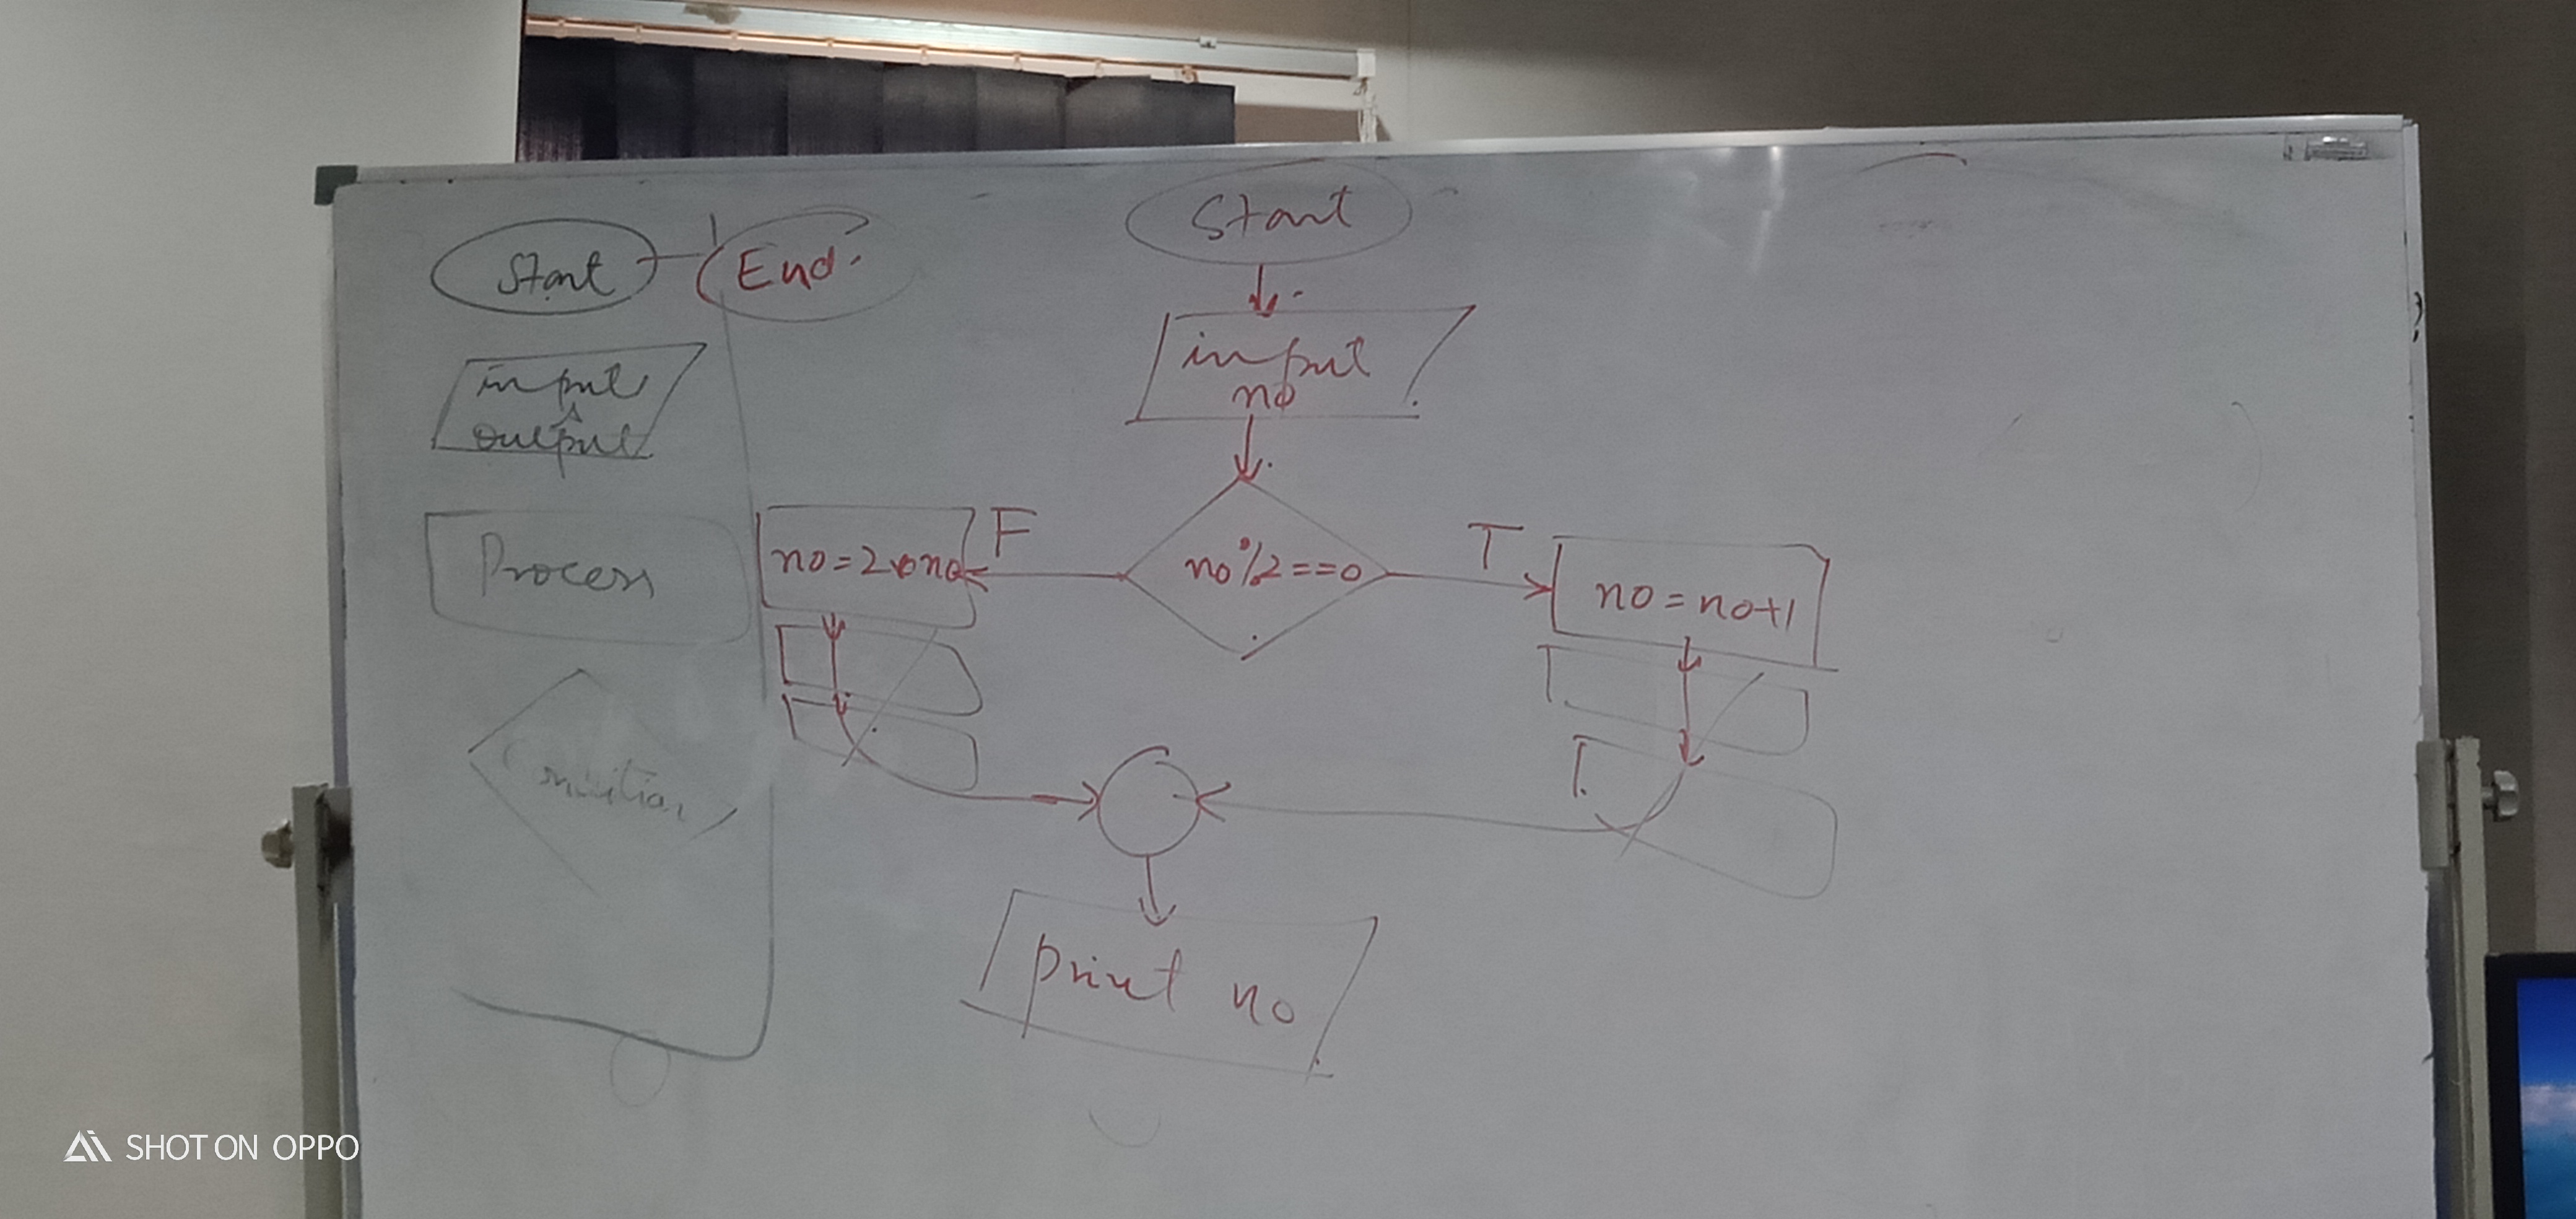 Start
End.
input
&
output
Process
Condition
Start
input
no
no%2==0
F
no=2*no
T
no=no+1
print no
SHOT ON OPPO